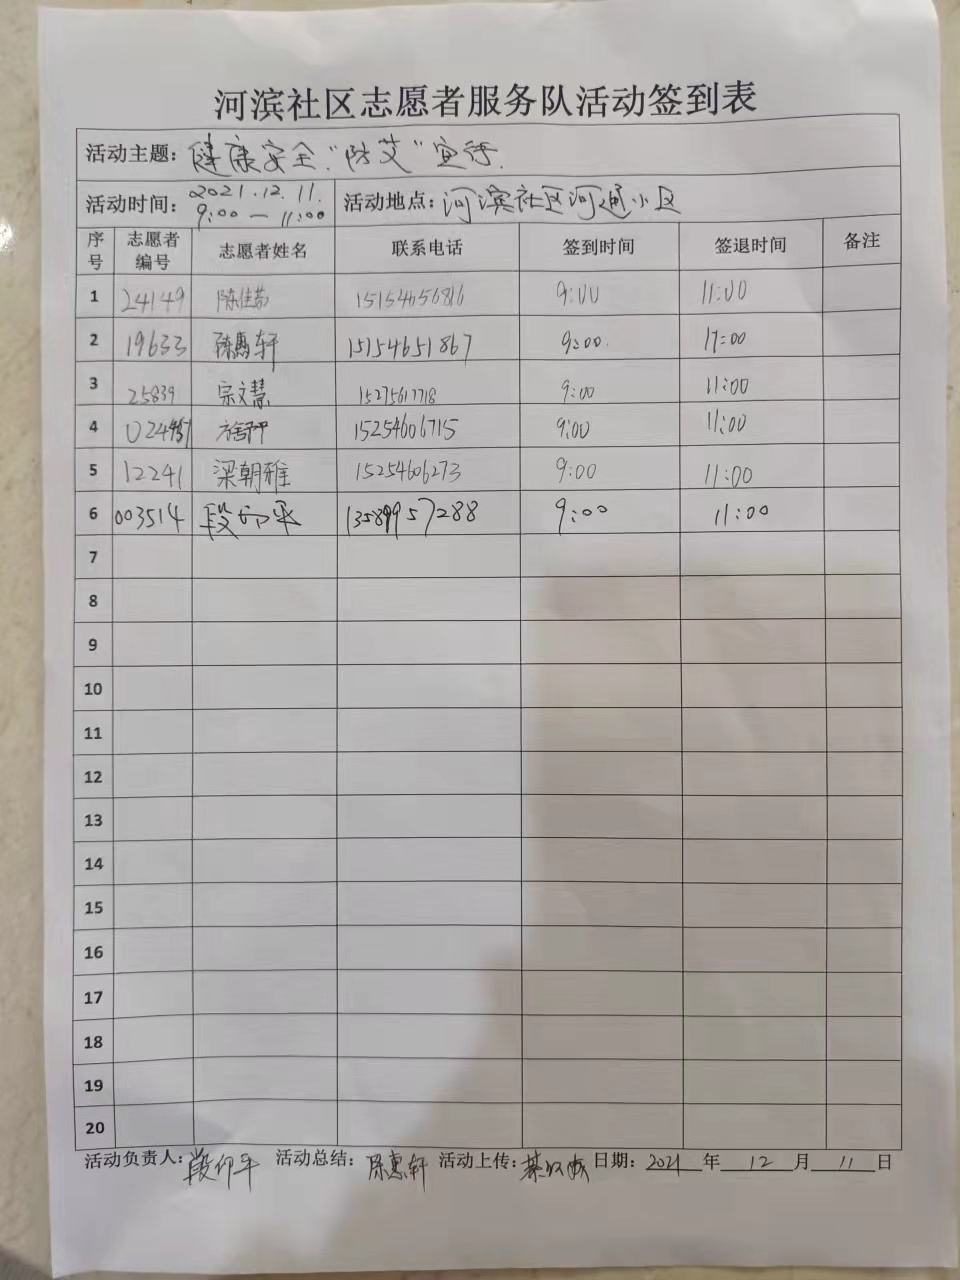 河滨社区志愿者服务队活动签到表
活动主题：健康安全."防艾"宣传.
活动时间：2021.12.11. 9:00 — 11:00 活动地点：河滨社区河通小区
序号 志愿者编号 志愿者姓名 联系电话 签到时间 签退时间 备注
1 24149 陈佳茹 15154656816 9:00 11:00
2 19633 陈惠轩 15154651867 9:00. 11:00
3 25839 宗文慧 15275617718 9:00 11:00
4 15254606715 9:00 11:00
5 12241 梁朝雅 15254606273 9:00 11:00
6 003514 段仰平 13589957288 9:00 11:00
7
8
9
10
11
12
13
14
15
16
17
18
19
20
活动负责人：段仰平 活动总结：陈惠轩 活动上传： 日期：2021年12月11日